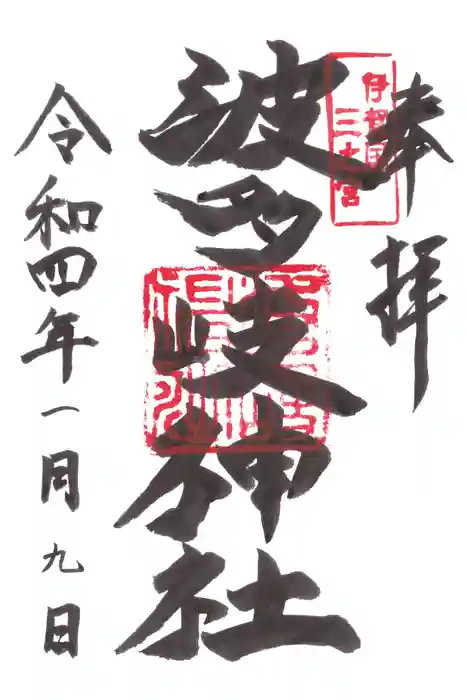 奉拝
伊賀国三之宮
波多岐神社
令和四年一月九日